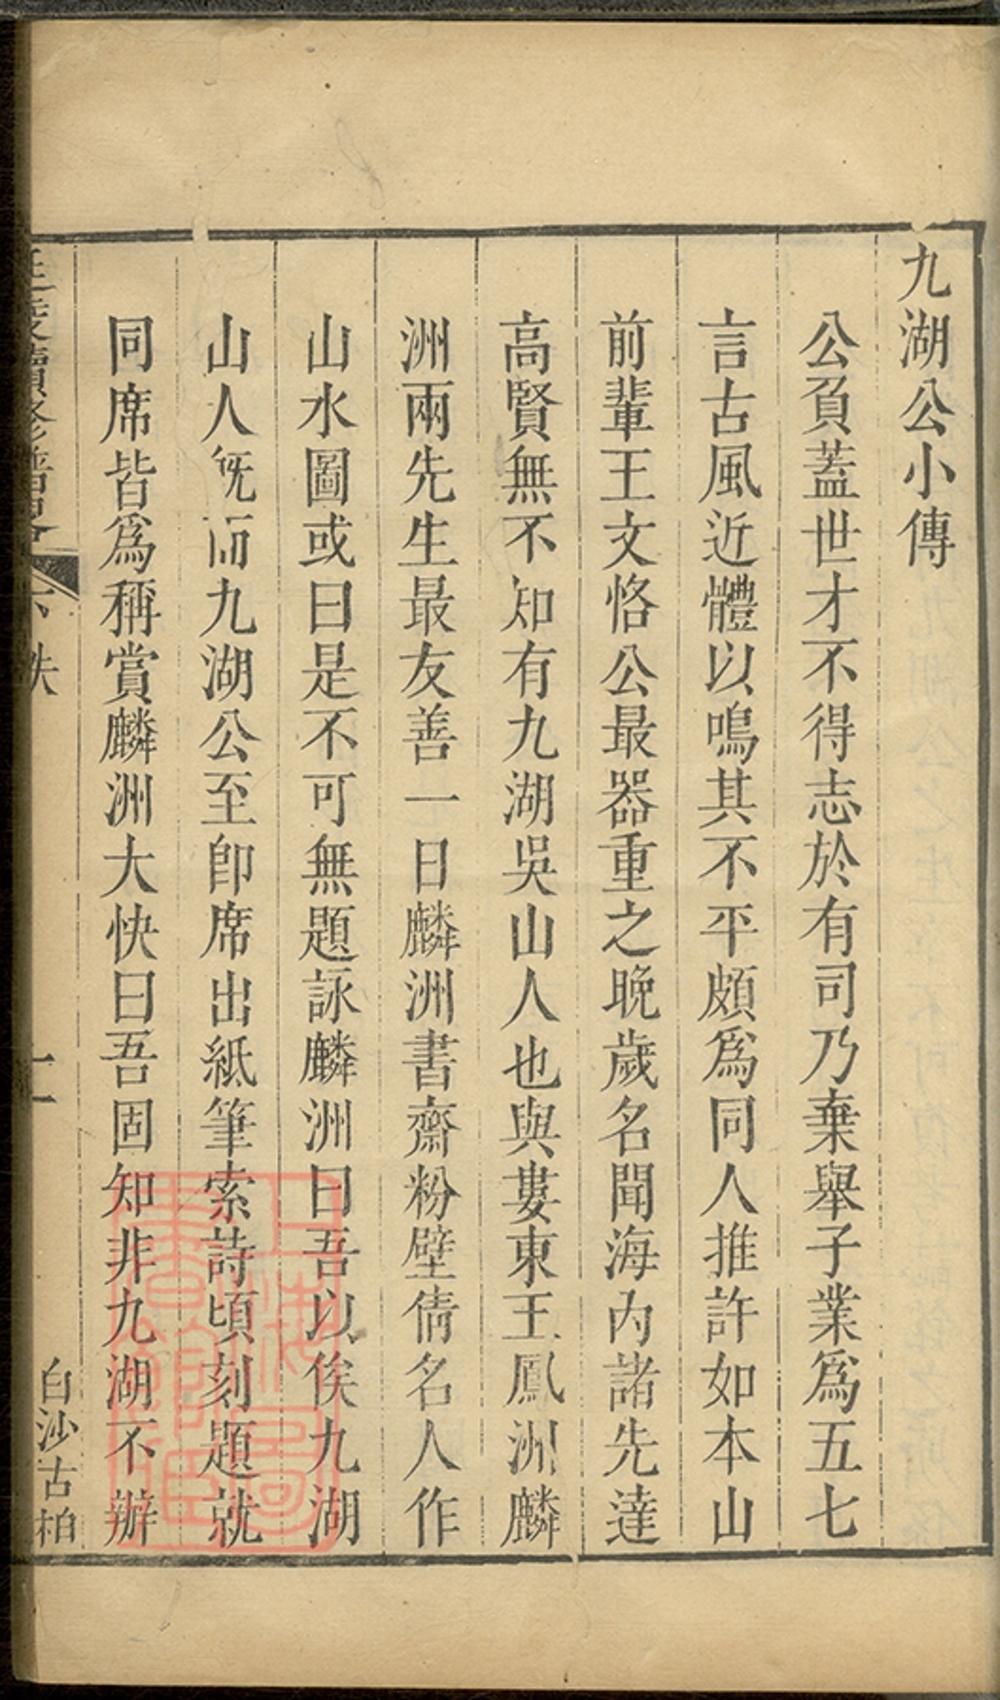 九湖公小傳
公負蓋世才不得志於有司乃棄舉子業爲五七
言古風近體以鳴其不平頗爲同人推許如本山
前輩王文恪公最器重之晚歲名聞海內諸先達
高賢無不知有九湖吳山人也與婁東王鳳洲麟
洲兩先生最友善一日麟洲書齋粉壁倩名人作
山水圖或曰是不可無題詠麟洲曰吾以俟九湖
山人旣而九湖公至卽席出紙筆索詩頃刻題就
同席皆爲稱賞麟洲大快曰吾固知非九湖不辦
白沙古柏